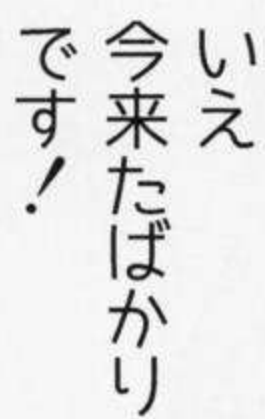 いえ
今来たばかり
です！